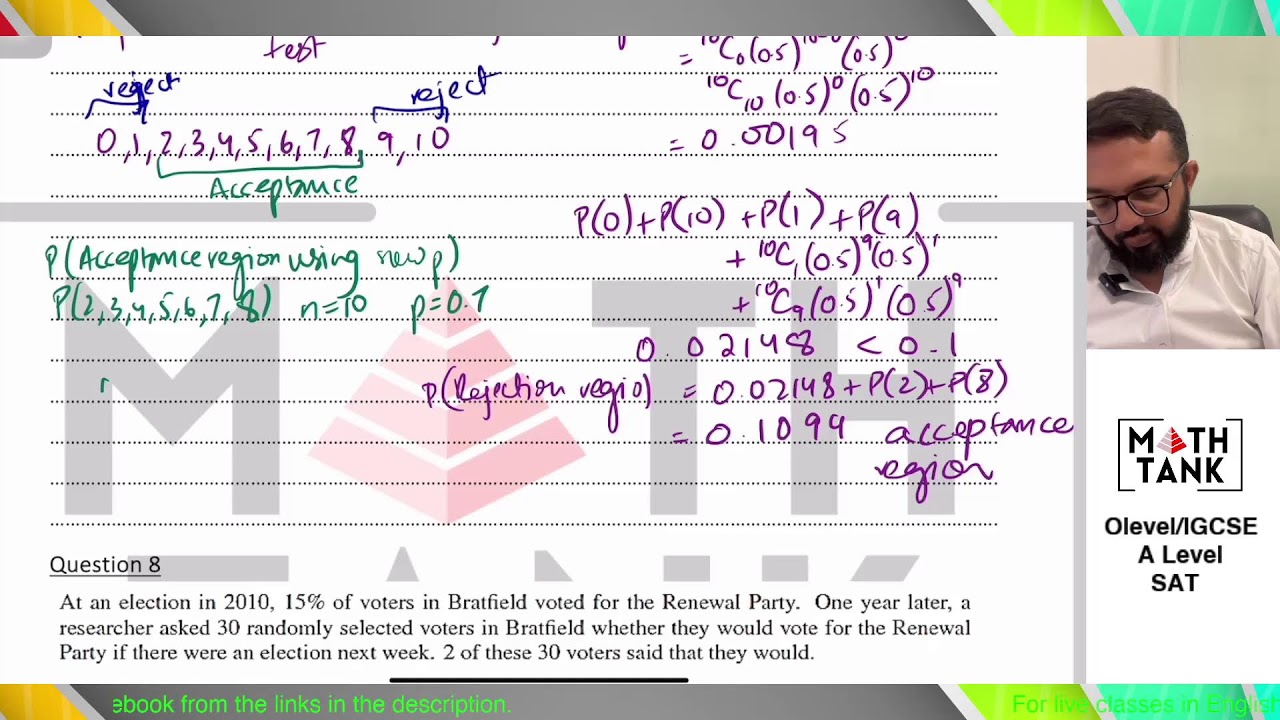 test
= ¹⁰C₀(0.5)¹⁰(0.5)⁰
reject
reject
¹⁰C₁₀(0.5)⁰(0.5)¹⁰
0,1,2,3,4,5,6,7,8,9,10
= 0.00195
Acceptance
P(0)+P(10)+P(1)+P(9)
P(Acceptance region using new p)
+ ¹⁰C₁(0.5)⁹(0.5)¹
P(2,3,4,5,6,7,8) n=10 p=0.7
+ ¹⁰C₉(0.5)¹(0.5)⁹
0.02148 < 0.1
P(Rejection regio) = 0.02148+P(2)+P(8)
= 0.1094 acceptance
region
MATH
TANK
Question 8
At an election in 2010, 15% of voters in Bratfield voted for the Renewal Party. One year later, a
researcher asked 30 randomly selected voters in Bratfield whether they would vote for the Renewal
Party if there were an election next week. 2 of these 30 voters said that they would.
MATH
TANK
Olevel/IGCSE
A Level
SAT
ebook from the links in the description.
For live classes in English